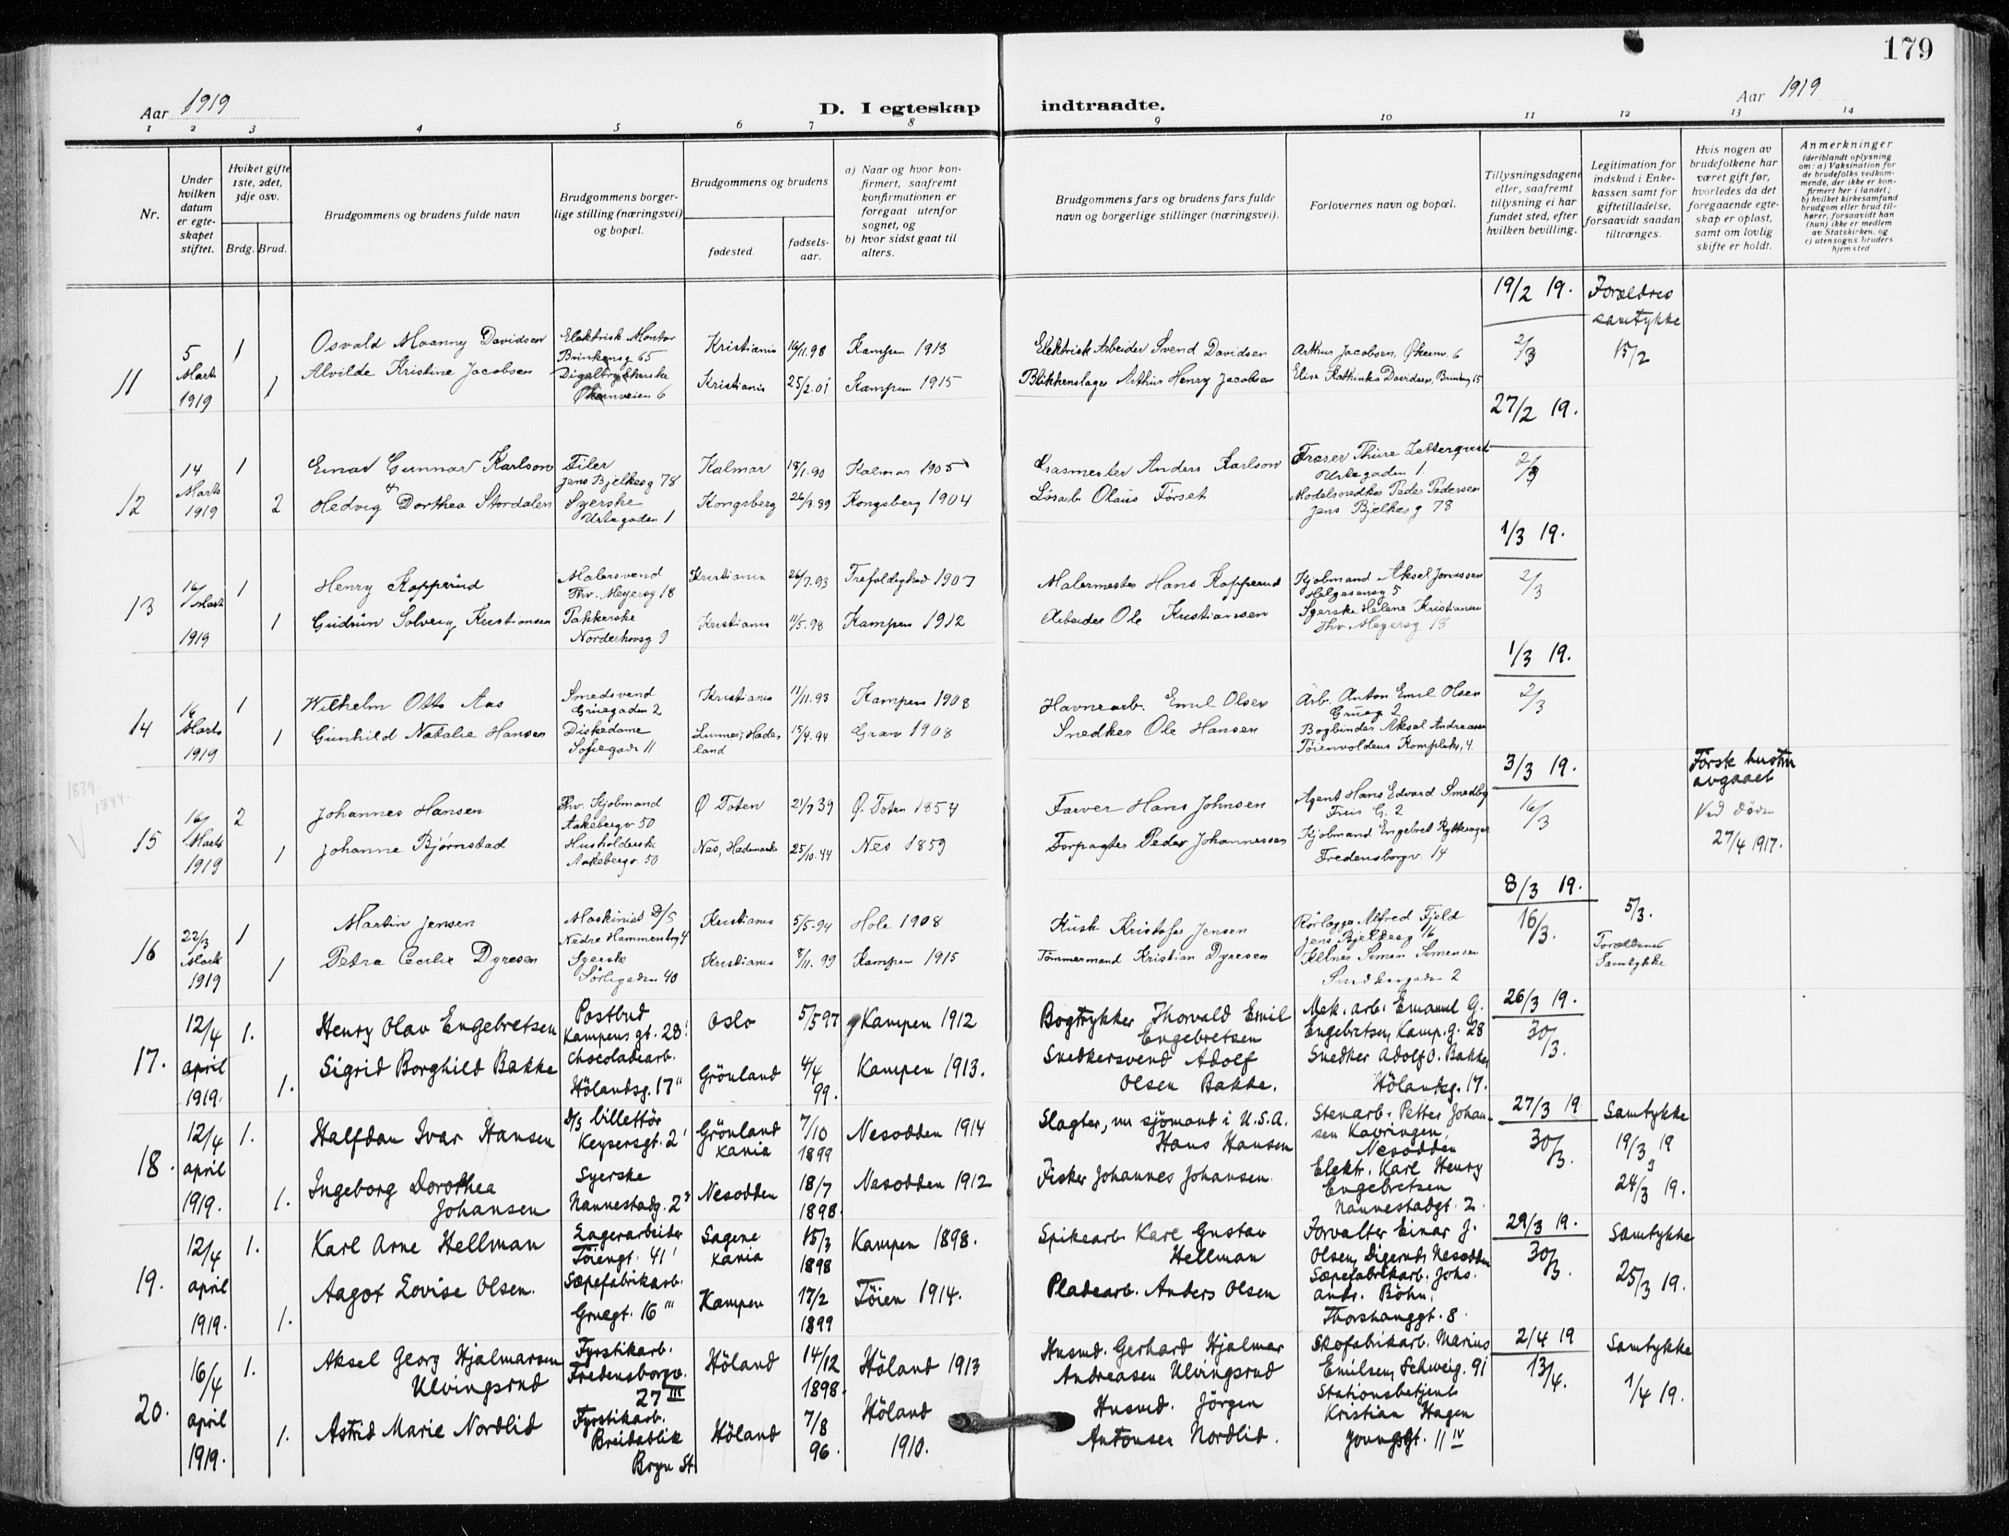 179
Aar 1919
D. I egteskap indtraadte.
Aar 1919
1 2 3 4 5 6 7 8 9 10 11 12 13 14
Nr.
Under hvilken datum er egteskapet stiftet.
Hviket gifte 1ste, 2det, 3dje osv.
Brdg. Brud.
Brudgommens og brudens fulde navn
Brudgommens borgerlige stilling (næringsvei) og bopæl.
Brudgommens og brudens
fødested.
fødselsaar.
a) Naar og hvor konfirmert, saafremt konfirmationen er foregaat utenfor sognet, og
b) hvor sidst gaat til alters.
Brudgommens fars og brudens fars fulde navn og borgerlige stillinger (næringsvei).
Forlovernes navn og bopæl.
Tillysningsdagene eller, saafremt tillysning ei har fundet sted, efter hvilken bevilling.
Legitimation for indskud i Enkekassen samt for giftetilladelse, forsaavidt saadan tiltrænges.
Hvis nogen av brudefolkene har været gift før, hvorledes da det foregaaende egteskap er opløst, samt om lovlig skifte er holdt.
Anmerkninger
(deriblandt oplysning om: a) Vaksination for de brudefolks vedkommende, der ikke er konfirmert her i landet; b) hvilket kirkesamfund brudgom eller brud tilhører, forsaavidt han (hun) ikke er medlem av Statskirken, og c) utensogns bruders hjemsted
11
5 Marts 1919
1
Osvald Davidsen
Elektrisk Montør
65
Kristiania 16/11.98
Kampen 1913
Elektrisk Arbeider Svend Davidsen
Arthur Jacobsen, Økernv. 6
19/2 19.
2/3
Forældres samtykke
15/2
1
Alvilde Kristine Jacobsen
Økernveien 6
Kristiania 25/2.01
Kampen 1915
Blikkenslager Arthur Henry Jacobsen
Elise Kathinka Davidsen,
12
14 Marts 1919
1
Einar Gunnar Karlson
Filer
Jens Bjelkesg 78
Kalmar 18/1.90
Kalmar 1905
Anders Karlson
Fræser Thure Zetterqvist
Urtegaden 1.
27/2 19.
2/3
2
Hedvig Dorthea Stordalen
Syerske
Urtegaden 1
Kongsberg 26/3.89
Kongsberg 1904
Løsarb. Olaus Førset
Modelsnedker Peder Pedersen
Jens Bjelkesg 78
13
16/ Marts 1919
1
Henry Kopperud
Malersvend
Thv. Meyersg 18
Kristiania 26/7.93
Trefoldighed 1907
Malermester Hans Kopperud
Kjøbmand Aksel Jonassen
Helgesensg 5
1/3 19.
2/3
1
Gudrun Solveig Kristiansen
Pakkerske
Norderhovsg 9
Kristiania 11/5.98
Kampen 1912
Arbeider Ole Kristiansen
Syerske Helene Kristiansen
Thv. Meyersg 18
14
16 Marts 1919
1
Wilhelm Otto Aas
Smedsvend
Gruegaden 2
Kristiania 11/11.93
Kampen 1908
Havnearb. Emil Olsen
Arb. Anton Emil Olsen
Grueg 2
1/3 19.
2/3
1
Gunhild Natalie Hansen
Diskedame
Sofiegade 11
Lunner, Hadeland 15/4.94
Gran 1908
Snedker Ole Hansen
Bogbinder Aksel Andreasen
Tøienvoldens Kompleks, 4.
1839.
1844.
15
16/ Marts 1919
2
Johannes Hansen
Fhv. Kjøbmand
Aakebergv 50
Ø Toten 21/7 39
Ø. Toten 1854
Farver Hans Johnsen
Agent Hans Edvard Smedby
Friis G. 2
3/3 19.
16/3
Første hustru avgaaet
ved døden
27/4 1917.
1
Johanne Bjørnstad
Husholderske
Aakebergv. 50
Nes, Hedemarken 25/10.44
Nes 1859
Forpagter Peder Johannessen
Kjøbmand Engebret Rytterager
Fredensborgv. 14
16
22/3 Marts 1919
1
Martin Jensen
Maskinist D/S
Nedre Hammersborg 4
Kristiania 5/5.94
Hole 1908
Kusk Kristofer Jensen
Rørlegger Alfred Fjeld
Jens Bjelkesg 16
8/3 19.
16/3.
5/3.
Forældrenes Samtykke
1
Petra Cecilie Dyresen
Syerske
Sørligaden 40
Kristiania 8/11.99
Kampen 1915
Tømmermand Kristian Dyresen
Simen Simensen
Smedbergaden 2
17.
12/4 april 1919.
1.
Henry Olav Engebretsen
Postbud
Kampens gt. 28'
Oslo 5/5 97
Kampen 1912
Bogtrykker Thorvald Emil Engebretsen
Mek. arb. Emanuel G. Engebretsen, Kamp. g. 28
26/3 19.
30/3.
1.
Sigrid Borghild Bakke
Chocoladearb.
Hölandsg. 17"
Grönland 4/4 99.
Kampen 1913.
Snedkersvend Adolf Olsen Bakke.
Snedker Adolf O. Bakke
Hölandsg. 17.
18.
12/4 april 1919.
1.
Halfdan Ivar Hansen
D/S billettör
Keysersgt. 2'
Grönland Xania 7/10 1899
Nesodden 1914
Slagter, nu sjömand i U.S.A. Hans Hansen
Stenarb. Petter Johansen Kavringen, Nesodden
27/3 19
30/3.
Samtykke
19/3 19
24/3 19.
1.
Ingeborg Dorothea Johansen
Syerske
Nannestadg. 2³
Nesodden 18/7 1898.
Nesodden 1912
Fisker Johannes Johansen.
Elektr. Karl Henry Engebretsen
Nannestadgt. 2.
19.
12/4 april 1919.
1.
Karl Arne Hellman
Lagerarbeider
Töiengt. 41'
Sagene Xania 15/3 1898
Kampen 1898.
Spikearb. Karl Gustav Hellman
Forvalter Einar J. Olsen, Digerud, Nesodden
29/3 19.
30/3.
Samtykke
25/3 19.
1.
Aagot Lovise Olsen.
Sæpefabrikarb.
Gruegt. 16 III
Kampen 17/2 1899
Töien 1914.
Pladearb. Anders Olsen
Sæpefabrikarb. Johs. Andr. Böhn,
Thorshauggt. 8.
20.
16/4 april 1919.
1.
Aksel Georg Hjalmarsen Ulvingsrud
Fyrstikarb.
Fredensborgv. 27 III
Höland 14/12 1898.
Höland 1913
Husmd. Gerhard Hjalmar Andreasen Ulvingsrud
Skofabrikarb. Marius Emilsen, Schweig. 91
2/4 19
13/4.
Samtykke
1/4 19.
1.
Astrid Marie Nordlid
Fyrstikarb.
Breidablik
Bryn St.
Höland 7/8 96.
Höland 1910.
Husmd. Jörgen Antonsen Nordlid.
Stationsbetjent Kristian Hagen
Youngsgt. 11 IV